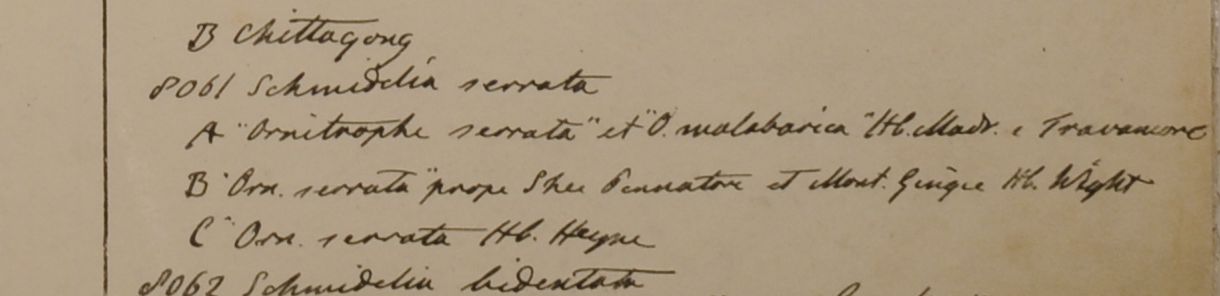 B Chittagong
8061 Schmidelia serrata
A "Ornitrophe serrata" et "O. malabarica" Hb. Madr. e Travancore
B "Orn. serrata" prope Shee Pennatore et Mont. Gingee Hb. Wight
C "Orn. serrata Hb. Heyne
8062 Schmidelia bidentata